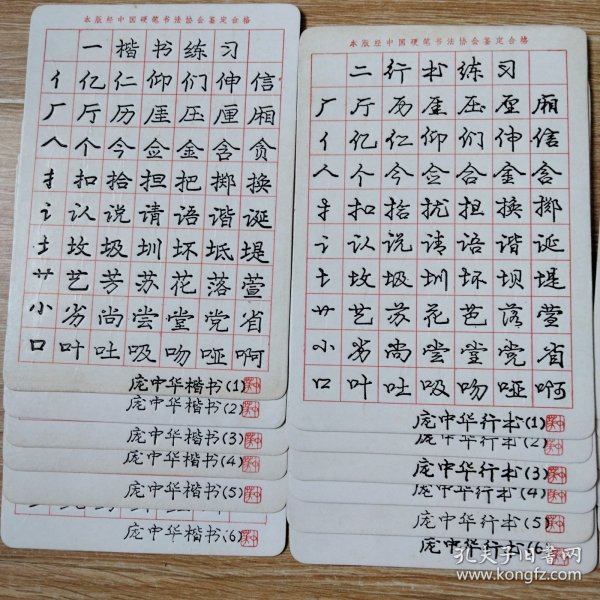 本版经中国硬笔书法协会鉴定合格
一楷书练习
亻亿仁仰们伸信
厂厅历厓压厘厢
人个今佥金含贪
扌扣拾担把掷换
讠认说请语谐诞
土坟圾圳坏坻堤
艹艺芳苏花落萱
小劣尚尝堂党省
口叶吐吸吻哑啊
庞中华楷书(1)
庞中华楷书(2)
庞中华楷书(3)
庞中华楷书(4)
庞中华楷书(5)
庞中华楷书(6)
本版经中国硬笔书法协会鉴定合格
二行书练习
厂厅历厓压厢
亻亿仁仰们伸信
人个今佥合金含
扌扣拾扰担换掷
讠认说请语谐诞
土坟圾圳坏坝堤
艹艺苏花芭落萱
小劣尚尝堂党省
口叶吐吸吻哑啊
庞中华行书(1)
庞中华行书(2)
庞中华行书(3)
庞中华行书(4)
庞中华行书(5)
庞中华行书(6)
孔夫子旧书网
www.kongfz.com